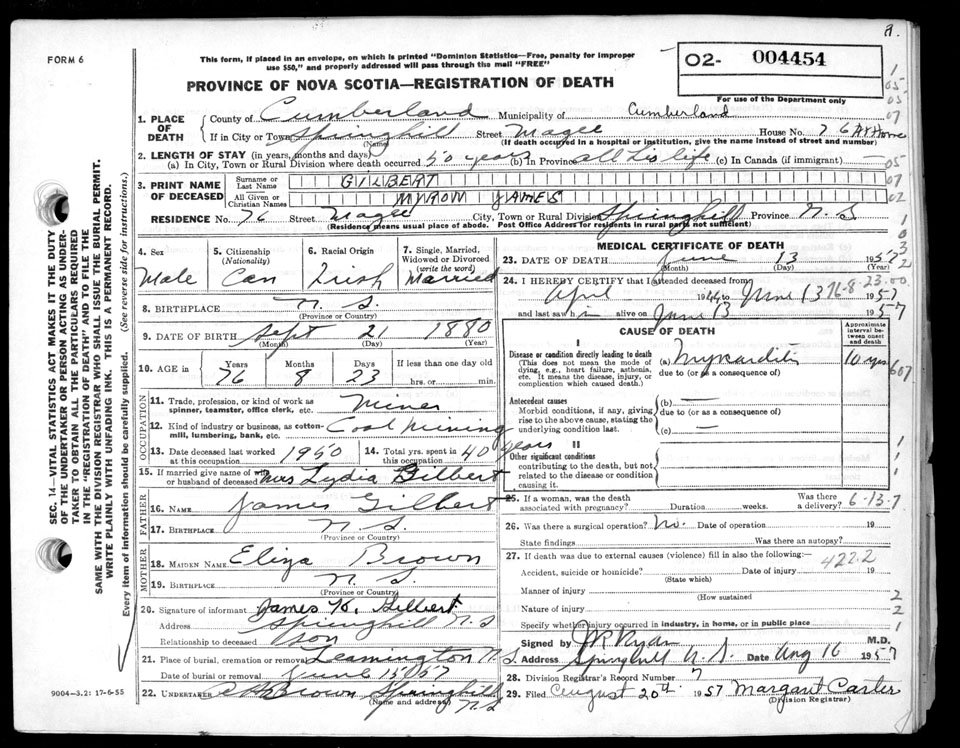 FORM 6
This form, if placed in an envelope, on which is printed "Dominion Statistics—Free, penalty for improper
use $50," and properly addressed will pass through the mail "FREE"
PROVINCE OF NOVA SCOTIA—REGISTRATION OF DEATH
02- 004454
For use of the Department only
1. PLACE OF DEATH
County of Cumberland Municipality of Cumberland
If in City or Town Springhill Street Magee House No. 76 At Home
(Name) (If death occurred in a hospital or institution, give the name instead of street and number)
2. LENGTH OF STAY (in years, months and days)
(a) In City, Town or Rural Division where death occurred 50 years (b) in Province all his life (c) In Canada (if immigrant)
3. PRINT NAME OF DECEASED
Surname or Last Name GILBERT
All Given or Christian Names MYROM JAMES
RESIDENCE No. 76 Street Magee City, Town or Rural Division Springhill Province N.S
(Residence means usual place of abode. Post Office Address for residents in rural parts not sufficient)
4. Sex Male
5. Citizenship (Nationality) Can
6. Racial Origin Irish
7. Single, Married, Widowed or Divorced (write the word) Married
8. BIRTHPLACE N. S.
(Province or Country)
9. DATE OF BIRTH Sept 21 1880
(Month) (Day) (Year)
10. AGE in Years 76 Months 8 Days 23 If less than one day old
hrs. or min.
OCCUPATION
11. Trade, profession, or kind of work as spinner, teamster, office clerk, etc. Miner
12. Kind of industry or business, as cotton-mill, lumbering, bank, etc. Coal Mining
13. Date deceased last worked at this occupation 1950
14. Total yrs. spent in this occupation 40 years
15. If married give name of wife or husband of deceased Mrs Lydia Gilbert
FATHER
16. Name James Gilbert
17. Birthplace N. S.
(Province or Country)
MOTHER
18. Maiden Name Eliza Brown
19. Birthplace N. S.
(Province or Country)
20. Signature of informant James K. Gilbert
Address Springhill N.S
Relationship to deceased son
21. Place of burial, cremation or removal Leamington N.S.
Date of burial or removal June 15 1957
22. Undertaker Brown Springhill
(Name and address) N.S
MEDICAL CERTIFICATE OF DEATH
23. DATE OF DEATH June 13 1957
(Month) (Day) (Year)
24. I HEREBY CERTIFY that I attended deceased from
76-8-23.00
April 1944 to June 13 1957
and last saw h m alive on June 13 1957
CAUSE OF DEATH
Approximate interval between onset and death
I
Disease or condition directly leading to death (a) Myocarditis 10 yrs
(This does not mean the mode of dying, e.g., heart failure, asthenia, etc. It means the disease, injury, or complication which caused death.)
due to (or as a consequence of)
Antecedent causes (b) —
Morbid conditions, if any, giving rise to above cause, stating the underlying condition last.
due to (or as a consequence of)
(c) —
II
Other significant conditions
contributing to the death, but not related to the disease or condition causing it
25. If a woman, was the death associated with pregnancy? Duration weeks. Was there a delivery?
6-13-7
26. Was there a surgical operation? No. Date of operation 19
State findings Was there an autopsy?
27. If death was due to external causes (violence) fill in also the following:—
422.2
Accident, suicide or homicide? Date of injury 19
(State which)
Manner of injury
(How sustained
Nature of injury
Specify whether injury occurred in industry, in home, or in public place
Signed by JR Ryan M.D.
Address Springhill N.S. Date Aug 16 1957
28. Division Registrar's Record Number 7
29. Filed August 20th 1957 Margaret Carter
(Division Registrar)
SEC. 14—VITAL STATISTICS ACT MAKES IT THE DUTY
OF THE UNDERTAKER OR PERSON ACTING AS UNDER-
TAKER TO OBTAIN ALL THE PARTICULARS REQUIRED
IN THE "REGISTRATION OF DEATH" AND TO FILE THE
SAME WITH THE DIVISION REGISTRAR WHO SHALL ISSUE THE BURIAL PERMIT.
WRITE PLAINLY WITH UNFADING INK. THIS IS A PERMANENT RECORD.
Every item of information should be carefully supplied. (See reverse side for instructions.)
9004—3.2: 17-6-55